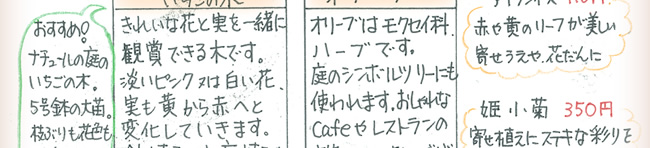 おすすめ!
ナチュールの庭の
いちごの木。
5号鉢の大苗。
枝ぶりも花色も
いちごの木
きれいな花と実を一緒に
観賞できる木です。
淡いピンク又は白い花、
実も黄から赤へと
変化していきます。
オリーブはモクセイ科
ハーブです。
庭のシンボルツリーにも
使われます。おしゃれな
Cafeやレストランの
赤や黄のリーフが美しい
寄せうえや、花だんに
姫小菊 350円
寄せ植えにステキな彩りを